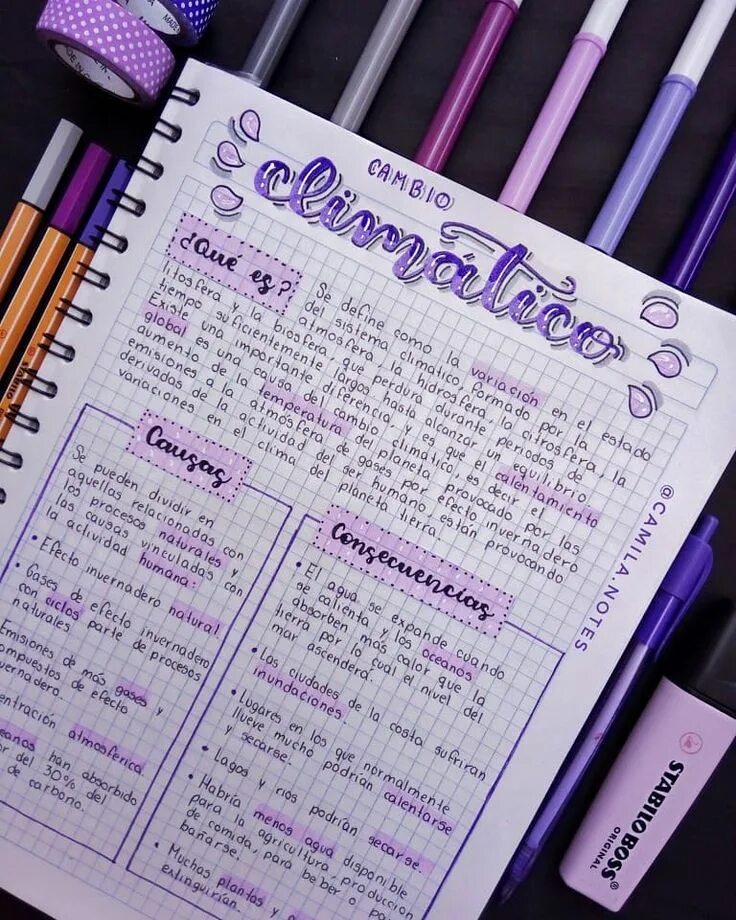 CAMBIO
climático
¿Qué es?
Se define como la variación en el estado
del sistema climatico, formado por la
atmosfera, la hidrosfera, la citrosfera, la
litosfera y la biosfera, que perdura durante periodos de
tiempo suficientemente largos hasta alcanzar un equilibrio.
Existe una importante diferencia, y es que el calentamiento
global es una causa del cambio climatico, es decir el
aumento de la temperatura del planeta, provocado por las
emisiones a la atmósfera de gases por efecto invernadero
derivadas de la actividad del ser humano, están provocando
variaciones en el clima del planeta tierra.
Causas
Se pueden dividir en
aquellas relacionadas con
los procesos naturales
las causas vinculadas con
la actividad humana:
• Efecto invernadero natural
• Gases de efecto invernadero
con ciclos parte de procesos
naturales
Emisiones de más gases y
compuestos de efecto
invernadero.
atmosférica.
han absorbido
del 30% del
de carbono.
Consecuencias
• El agua se expande cuando
se calienta y los oceanos
absorben más calor que la
tierra por lo cual el nivel del
mar ascenderá.
• Las ciudades de la costa sufriran
inundaciones.
• Lugares en los que normalmente
llueve mucho podrían calentarse
y secarse.
• Lagos y rios podrían secarse.
• Habría menos agua disponible
para la agricultura, producción
de comida, para beber o para
bañarse.
• Muchas plantas y
extinguirían.
@CAMILA.NOTES
STABILO BOSS
ORIGINAL
STABILO
MADE